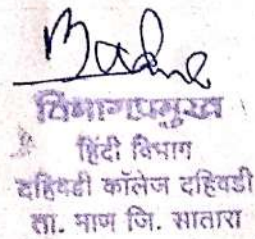 विभागप्रमुख
हिंदी विभाग
दहिवडी कॉलेज दहिवडी
ता. माण जि. सातारा